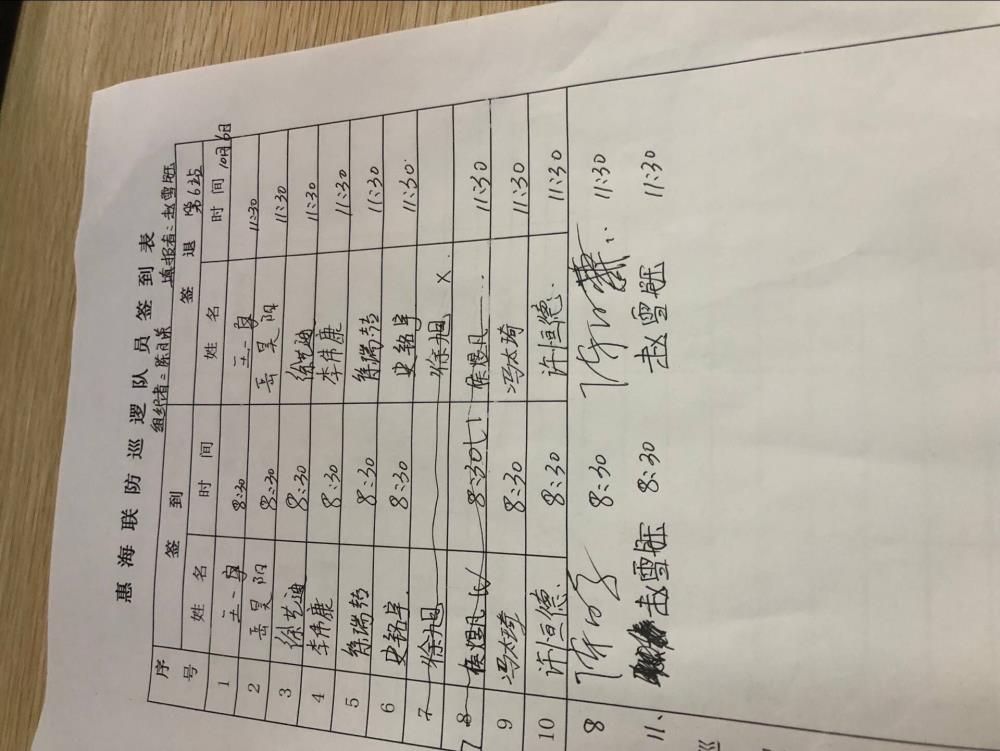 惠海联防巡逻队员签到表
组织者：陈月 填报者：赵雪
第6站
序号 签到 签退
姓名 时间 姓名 时间 10月6日
1 王一 8:30 王一 11:30
2 岳昊阳 8:30 岳昊阳 11:30
3 徐艺迪 8:30 徐艺迪 11:30
4 李伟康 8:30 李伟康 11:30
5 徐瑞 8:30 徐瑞 11:30
6 史铭宇 8:30 史铭宇 11:30
7 徐旭 徐旭 ×
7 8 侯煜凡 8:30 侯煜凡 11:30
9 冯太琦 8:30 冯太琦 11:30
10 许恒德 8:30 许恒德 11:30
8 8:30 11:30
11、 赵雪 8:30 赵雪 11:30
巡